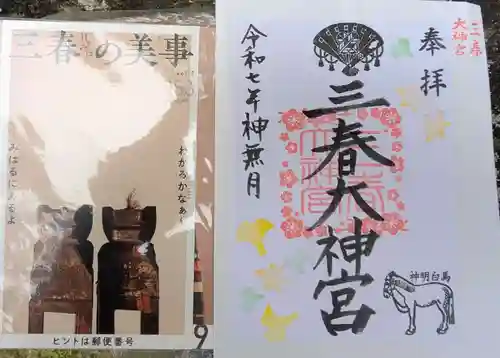 三春の美事
わかるかなぁ
みはるにあるよ
ヒントは郵便番号
9
三春
大神宮
奉拝
三春大神宮
令和七年神無月
神明白馬